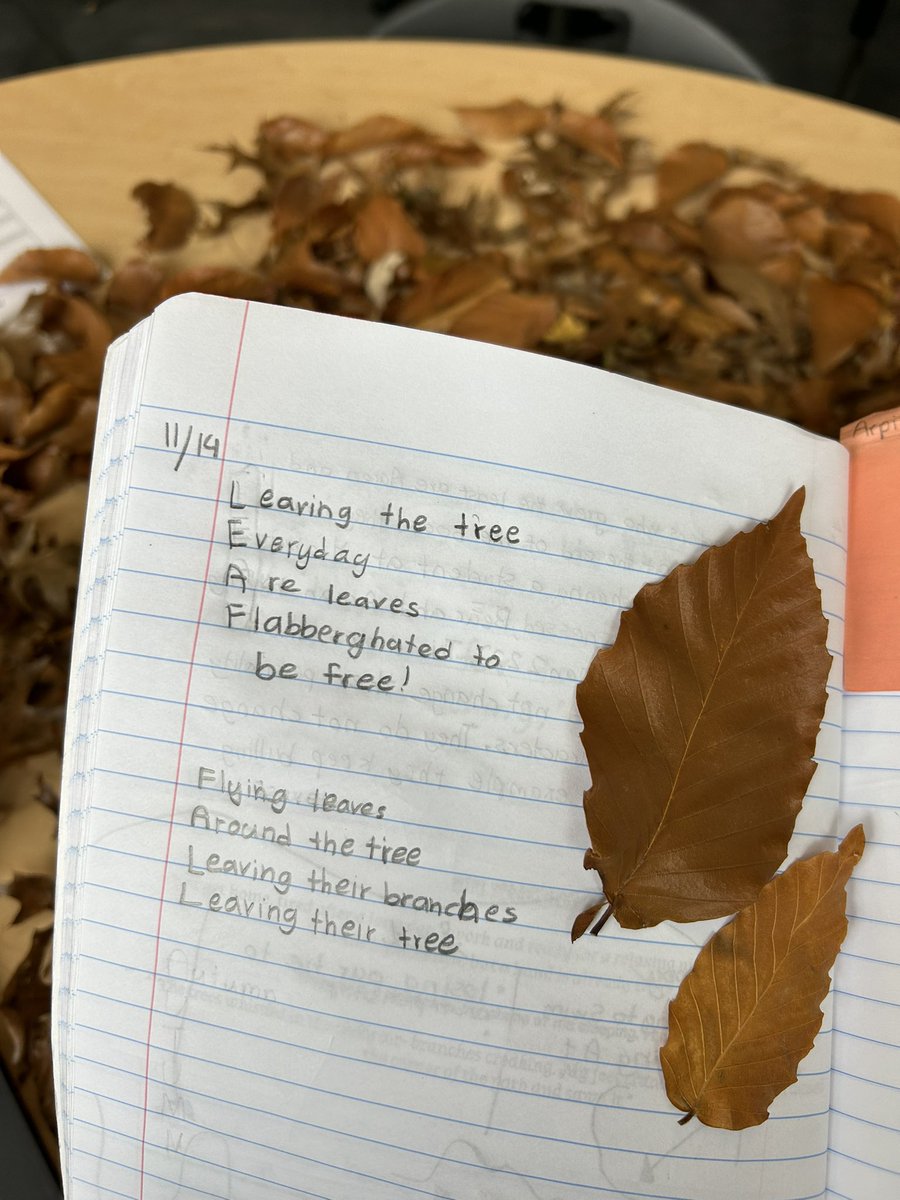 11/14
Leaving the tree
Everyday
Are leaves
Flabberghated to
be free!
Flying leaves
Around the tree
Leaving their branches
Leaving their tree